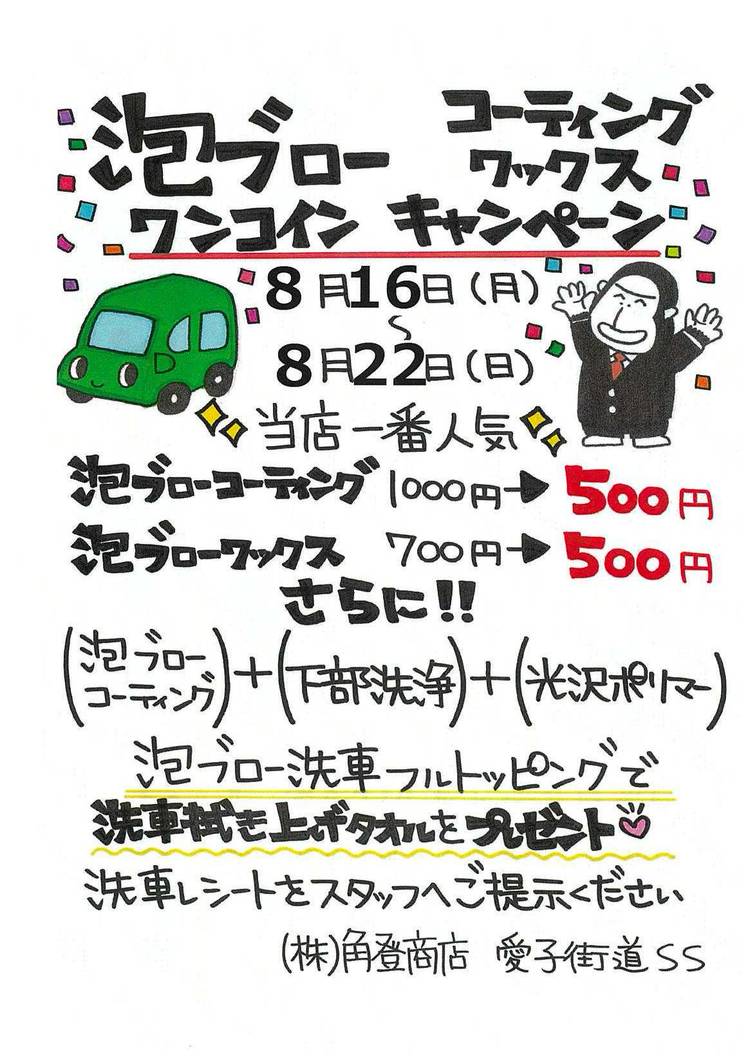 泡ブロー コーティング
ワックス
ワンコイン キャンペーン
8月16日(月)
〜
8月22日(日)
当店一番人気
泡ブローコーティング 1000円→500円
泡ブローワックス 700円→500円
さらに!!
(泡ブローコーティング)+(下部洗浄)+(光沢ポリマー)
泡ブロー洗車フルトッピングで
洗車拭き上げタオルをプレゼント
洗車レシートをスタッフへご提示ください
(株)角登商店 愛子街道SS